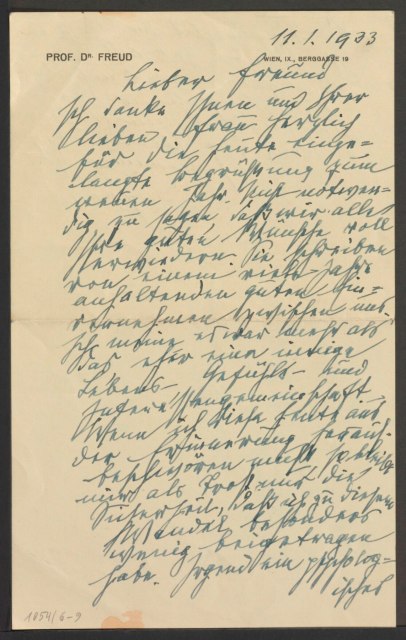 PROF. DR. FREUD
WIEN, IX., BERGGASSE 19
11. 1. 1933
Lieber Freund
Ich danke Ihnen und Ihrer
lieben Frau herzlich
für die heute einge=
langte Begrüßung zum
neuen Jahr. Nicht notwen=
dig zu sagen, daß wir alle
Ihre guten Wünsche voll
erwiedern. Sie schreiben
von einem viele Jahre
anhaltenden guten Ein=
vernehmen zwischen uns.
Ich meine es war mehr als
das, eher eine innige
Lebens- Gefühls- und
Interessengemeinschaft.
Wenn ich diese heute aus
der Erinnerung herauf-
beschwören muß, so bleibt
mir als Trost nur die
Sicherheit, daß ich zu diesem
Wandel besonders
wenig beigetragen
habe. Irgend ein psycholog=
isches
1054/6-9